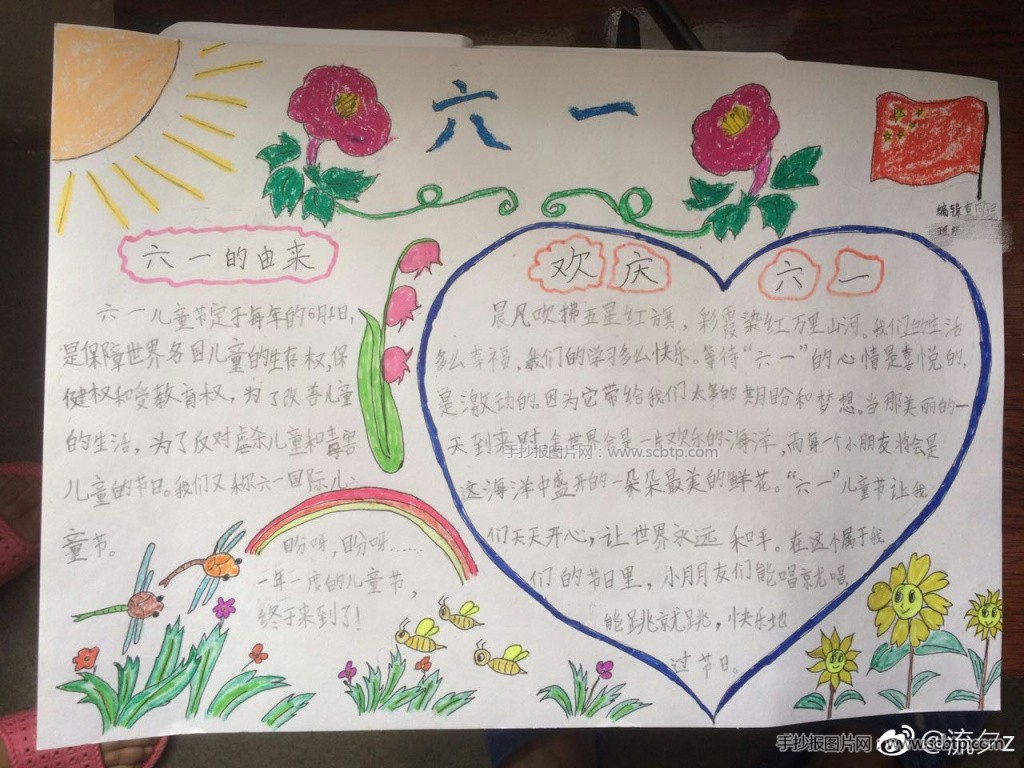 六一
编辑
班级
六一的由来
六一儿童节定于每年的6月1日,
是保障世界各国儿童的生存权,保
健权和受教育权,为了改善儿童
的生活,为了反对虐杀儿童和毒害
儿童的节日。我们又称六一国际儿
童节。
盼呀,盼呀……
一年一度的儿童节,
终于来到了!
欢庆六一
晨风吹拂五星红旗,彩霞染红万里山河。我们的生活
多么幸福,我们的学习多么快乐。等待“六一”的心情是喜悦的,
是激动的。因为它带给我们太多的期盼和梦想。当那美丽的一
天到来时,全世界会是一片欢乐的海洋,而每一个小朋友将会是
这海洋中盛开的一朵朵最美的鲜花。“六一”儿童节让我
们天天开心,让世界永远和平。在这个属于我
们的节日里,小朋友们能唱就唱,
能跳就跳,快乐地
过节日。
手抄报图片网:www.scbtp.com
手抄报图片网:www.scbtp.com
@流夕z